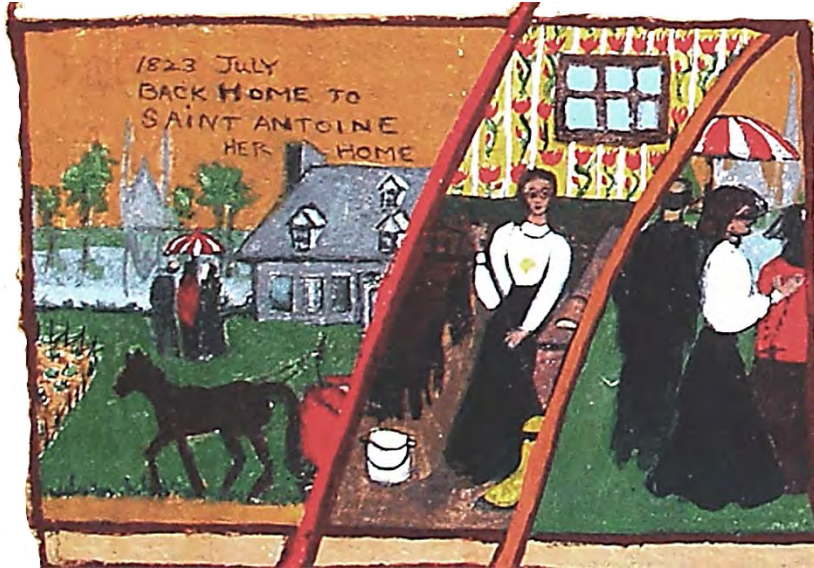 1823 JULY
BACK HOME TO
SAINT ANTOINE
HER HOME